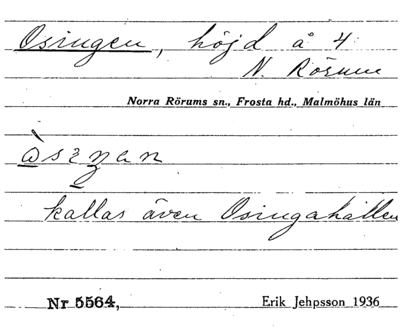 Osingen, höjd å 4
N. Rörum
Norra Rörums sn., Frosta hd., Malmöhus län
kallas även Osingahallen
Nr 5564, Erik Jehpsson 1936